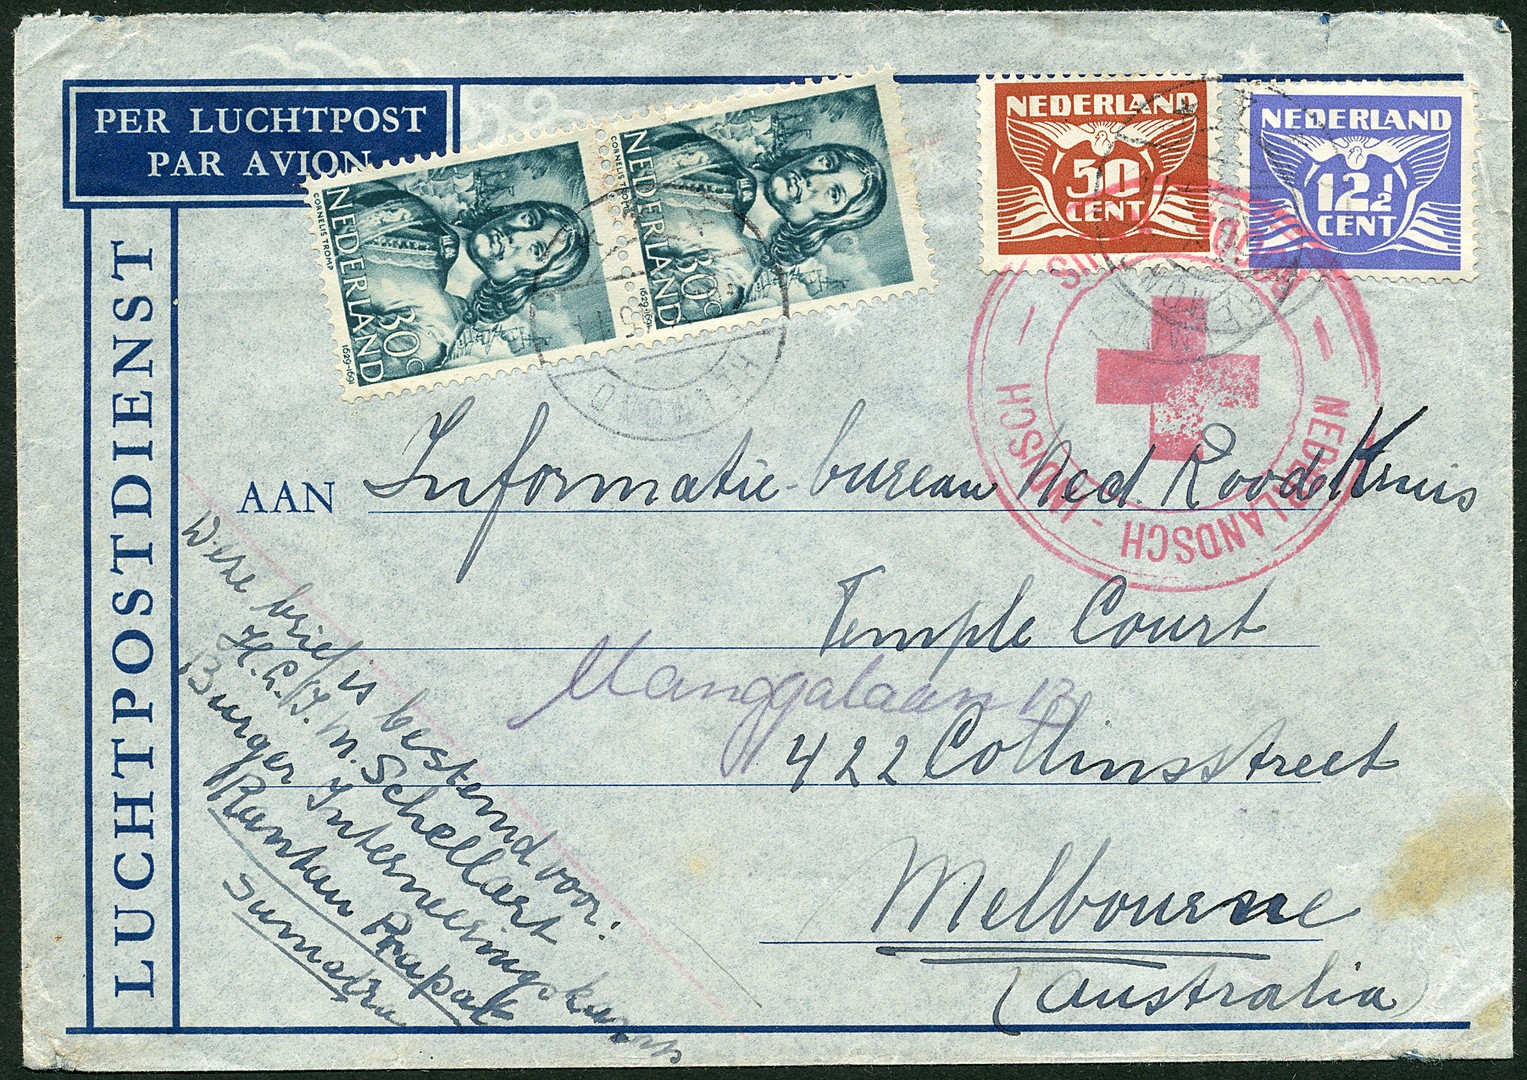 PER LUCHTPOST
PAR AVION
LUCHTPOSTDIENST
NEDERLAND
CORNELIS TROMP
30c
1629-1691
NEDERLAND
CORNELIS TROMP
30c
1629-1691
NEDERLAND
50
CENT
NEDERLAND
12½
CENT
HELMOND
HELMOND
NEDERLANDSCH-INDISCH
AAN Informatie-bureau Ned. Roode Kruis
Temple Court
Manggalaan 13
422 Collinsstreet
Melbourne
(Australia)
Deze brief is bestemd voor:
H.L.J.M. Schellart
Burger Interneeringskamp
Rantau Prapat
Sumatra